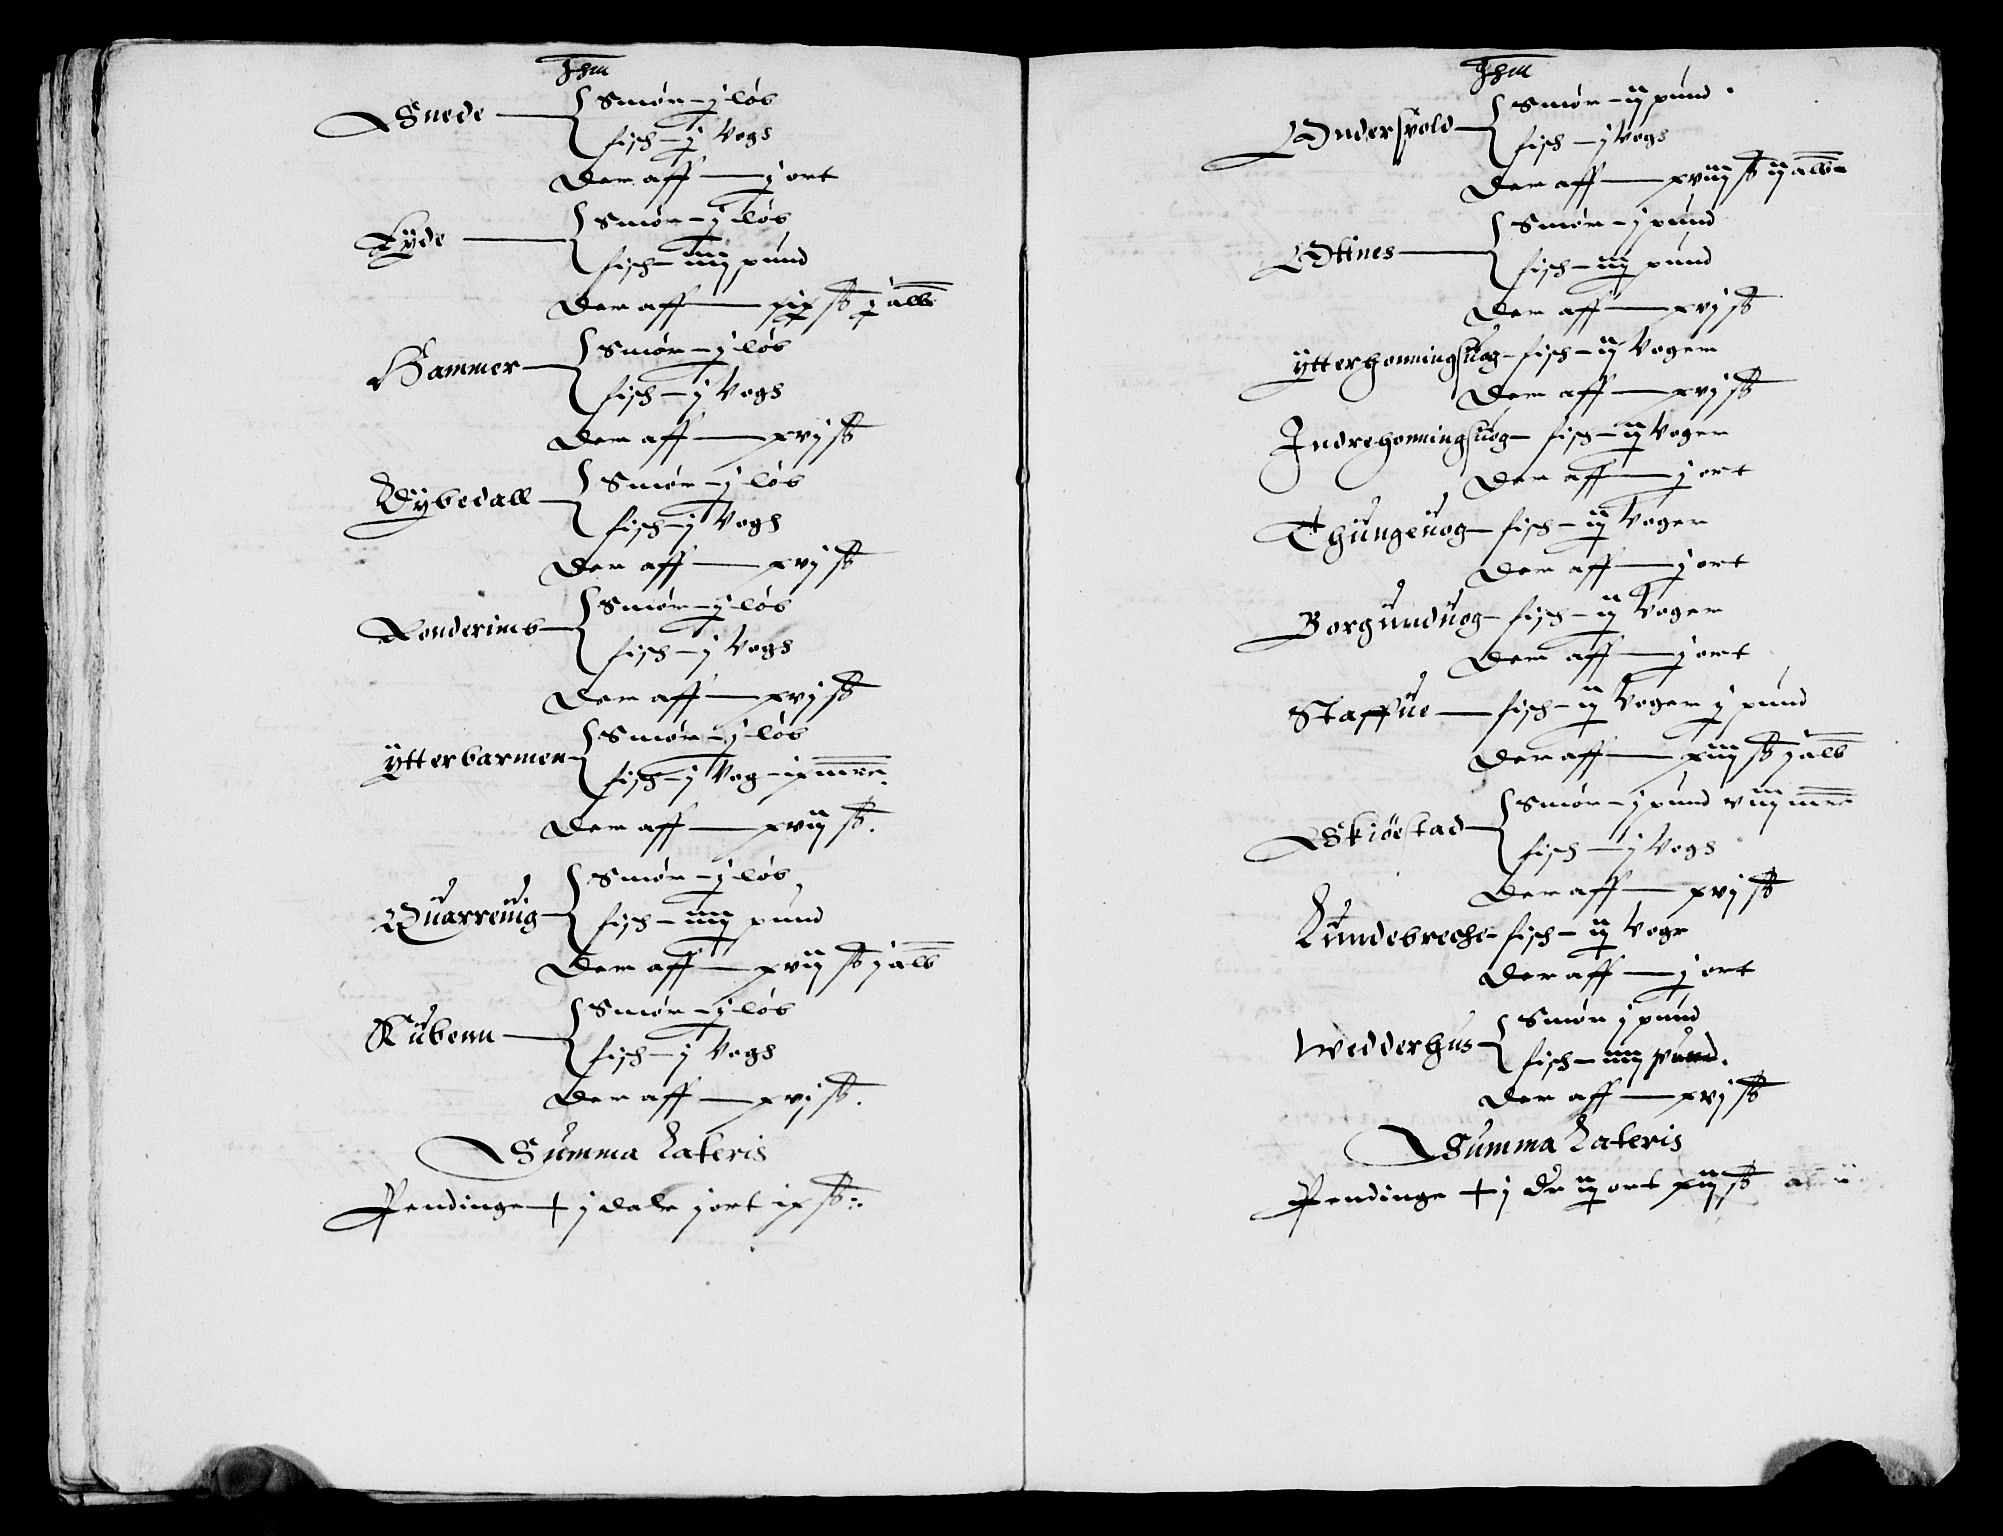 Ihm
Snede — Smør – j løb
fisch – j Vogh
Der aff — j ort
Eyde — Smør – j løb
fisch – iiij pund
Der aff — xix ß j alb
Hammer — Smør – j løb
fisch – j Vogh
Der aff — xvj ß
Dybedall — Smør – j løb
fisch – j Vogh
Der aff — xvj ß
Smør – j løb
fisch – j Vogh
Der aff — xvj ß
Ytterbarmen — Smør – j løb
fisch – j Vog – ix mrc
Der aff — xviij ß.
Quarreuig — Smør – j løb
fisch – iiij pund
Der aff — xviij ß j alb
Rübenn — Smør – j løb
fisch – j Vogh
Der aff — xvj ß.
Summa Lateris
Pendinge + j dale j ort ix ß
Ihm
Onderspold — Smør – ij pund
fisch – j Vogh
Der aff — xviij ß ij alb
Otines — Smør – j pund
fisch – iiij pund
Der aff — xvj ß
Ytterhonningsuog – fisch – ij Voger
Der aff — xvj ß
Indrehonningsuog – fisch – iij Voger
Der aff — j ort
Thungeuog – fisch – iij Voger
Der aff — j ort
Borgunduog – fisch – iij Voger
Der aff — j ort
Staffue — fisch – ij Voger j pund
Der aff — xiiij ß j alb
Skiöestad — Smør – j pund viij mrc
fisch – j Vogh
Der aff — xvj ß
Lundebreche – fisch – iij Voge
Der aff — j ort
Wedderhus — Smør j pund
fisch – iiij pund.
Der aff — xvj ß
Summa Lateris
Pendinge + j Dr iij ort xiij ß